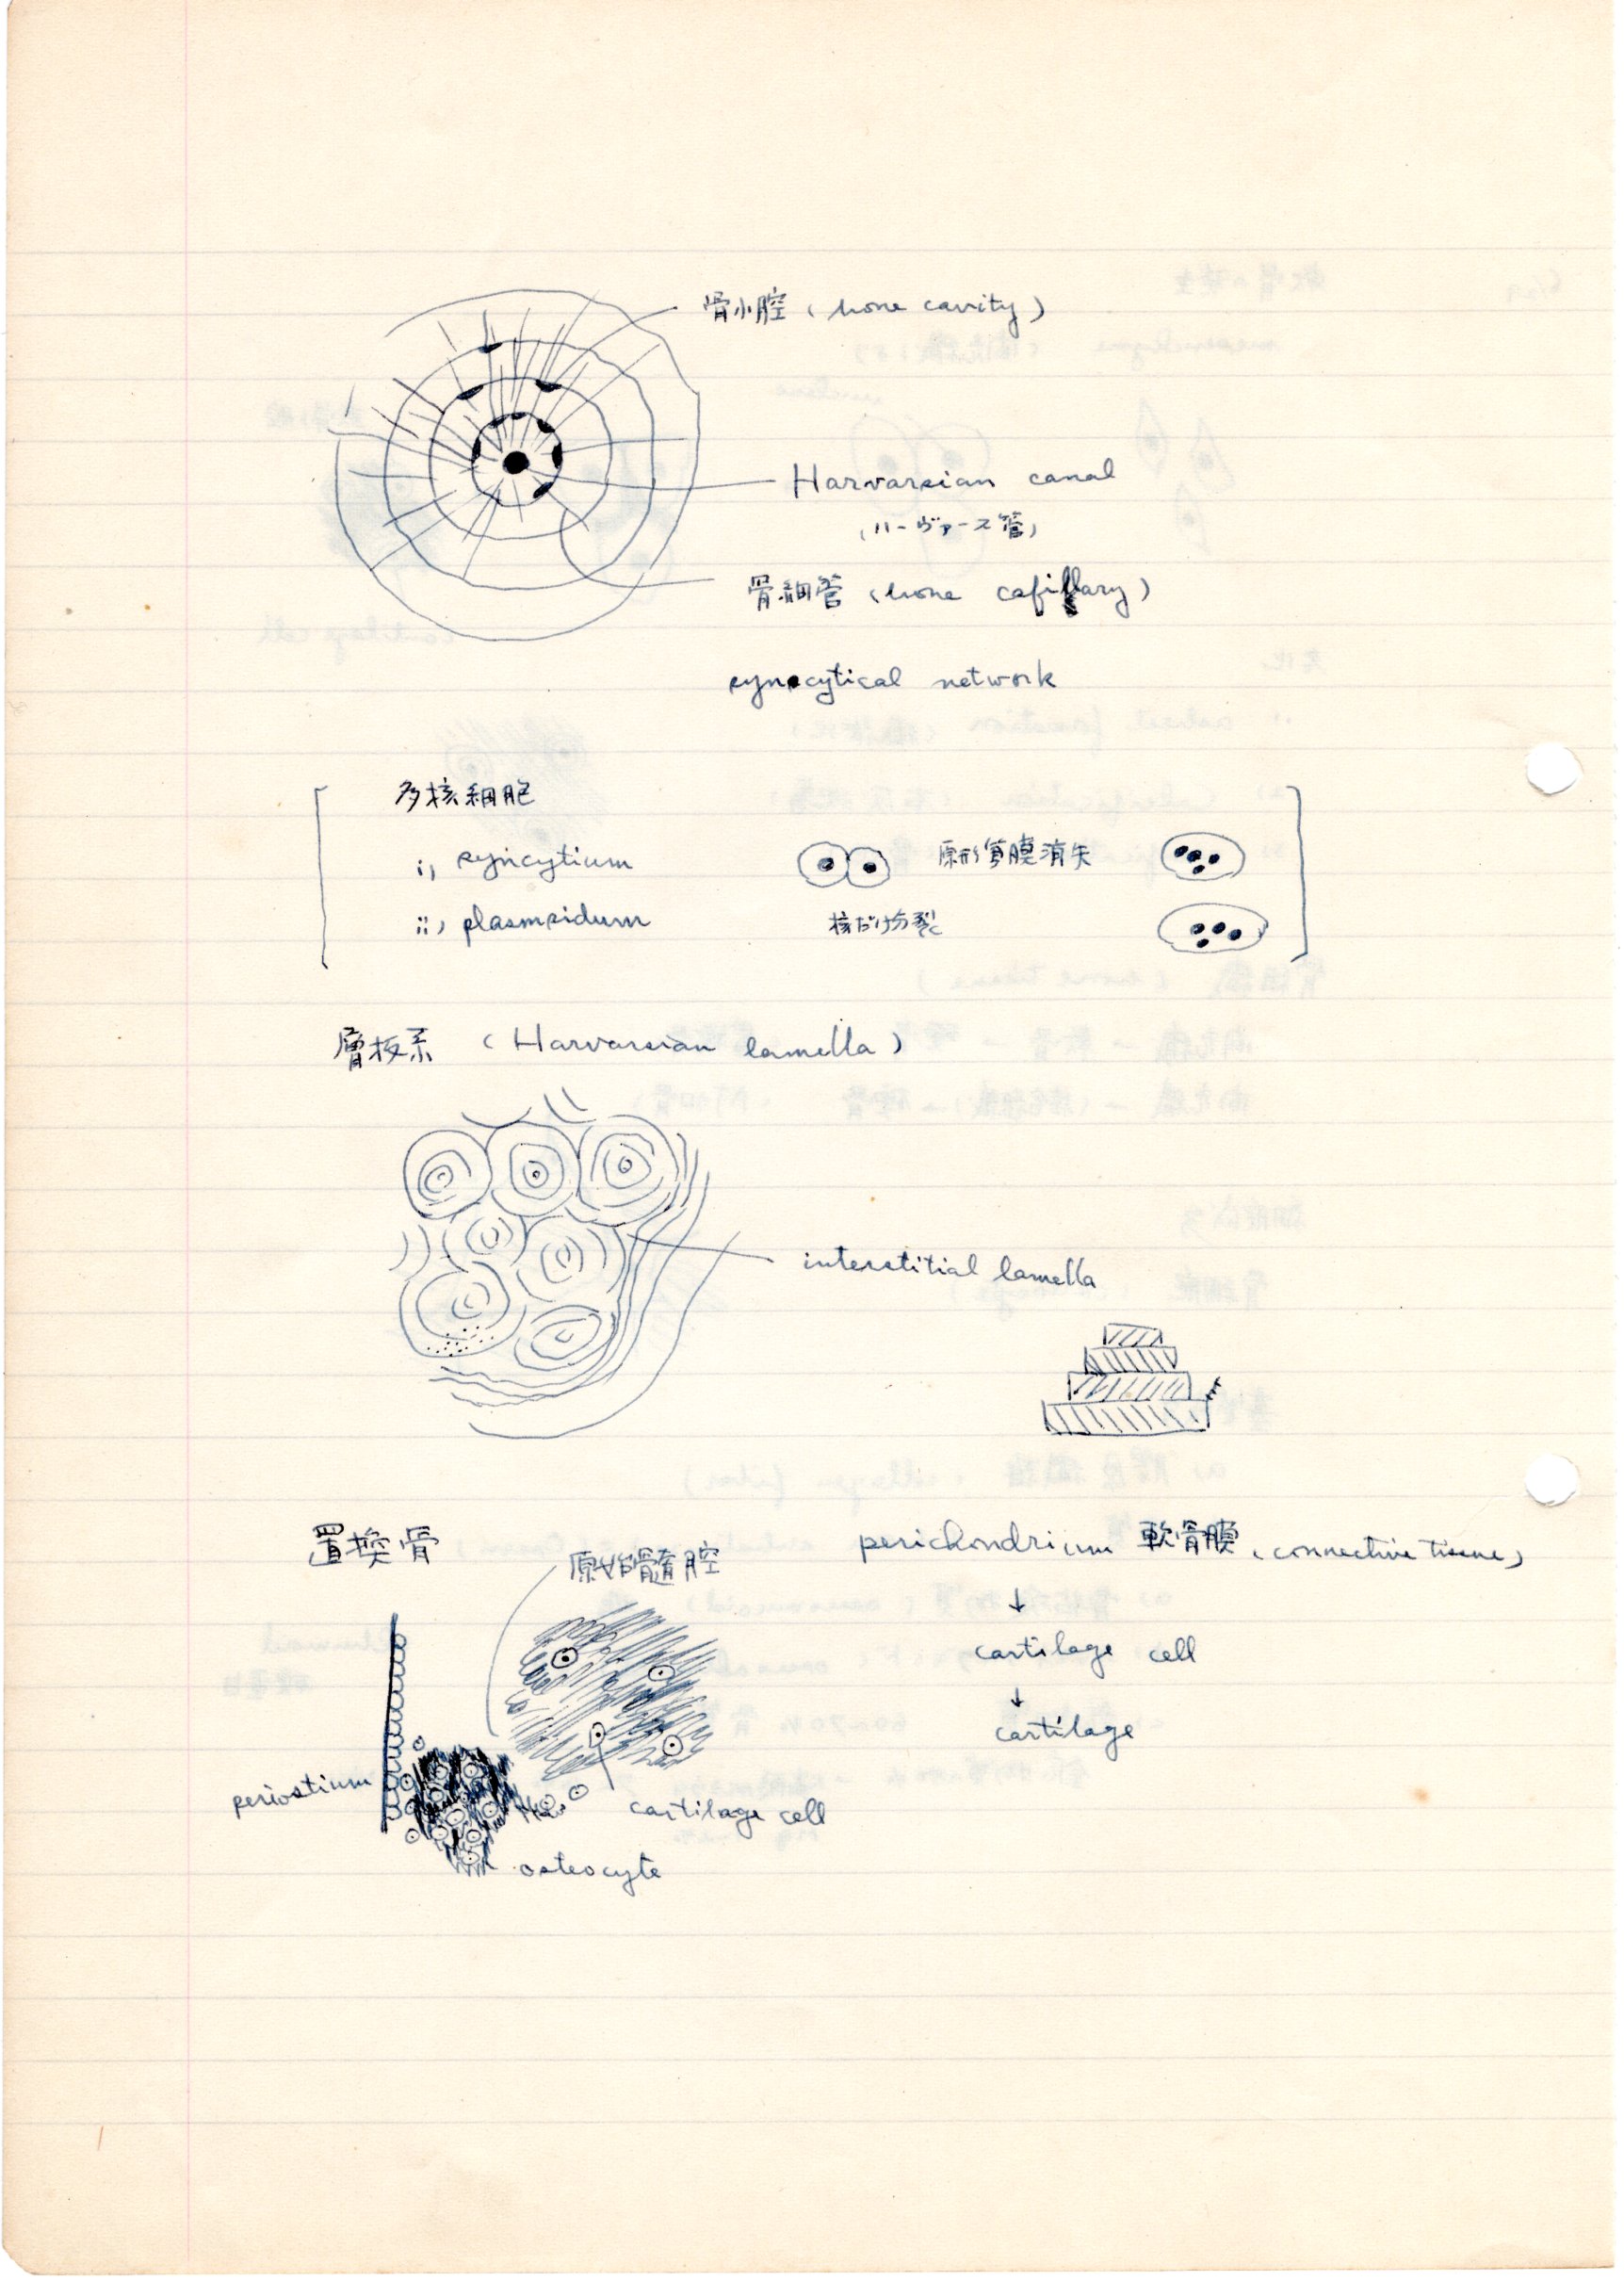 骨小腔 (bone cavity)
Harvarsian canal
(ハーヴァース管)
骨細管 (bone capillary)
syncytical network
多核細胞
i) syncytium 原形質膜消失
ii) plasmsidum 核だけ分裂
層板系 (Harvarsian lamella)
interstitial lamella
置換骨
原始骨髄腔
perichondrium 軟骨膜 (connective tissue)
↓
cartilage cell
↓
cartilage
periostium
cartilage cell
osteocyte